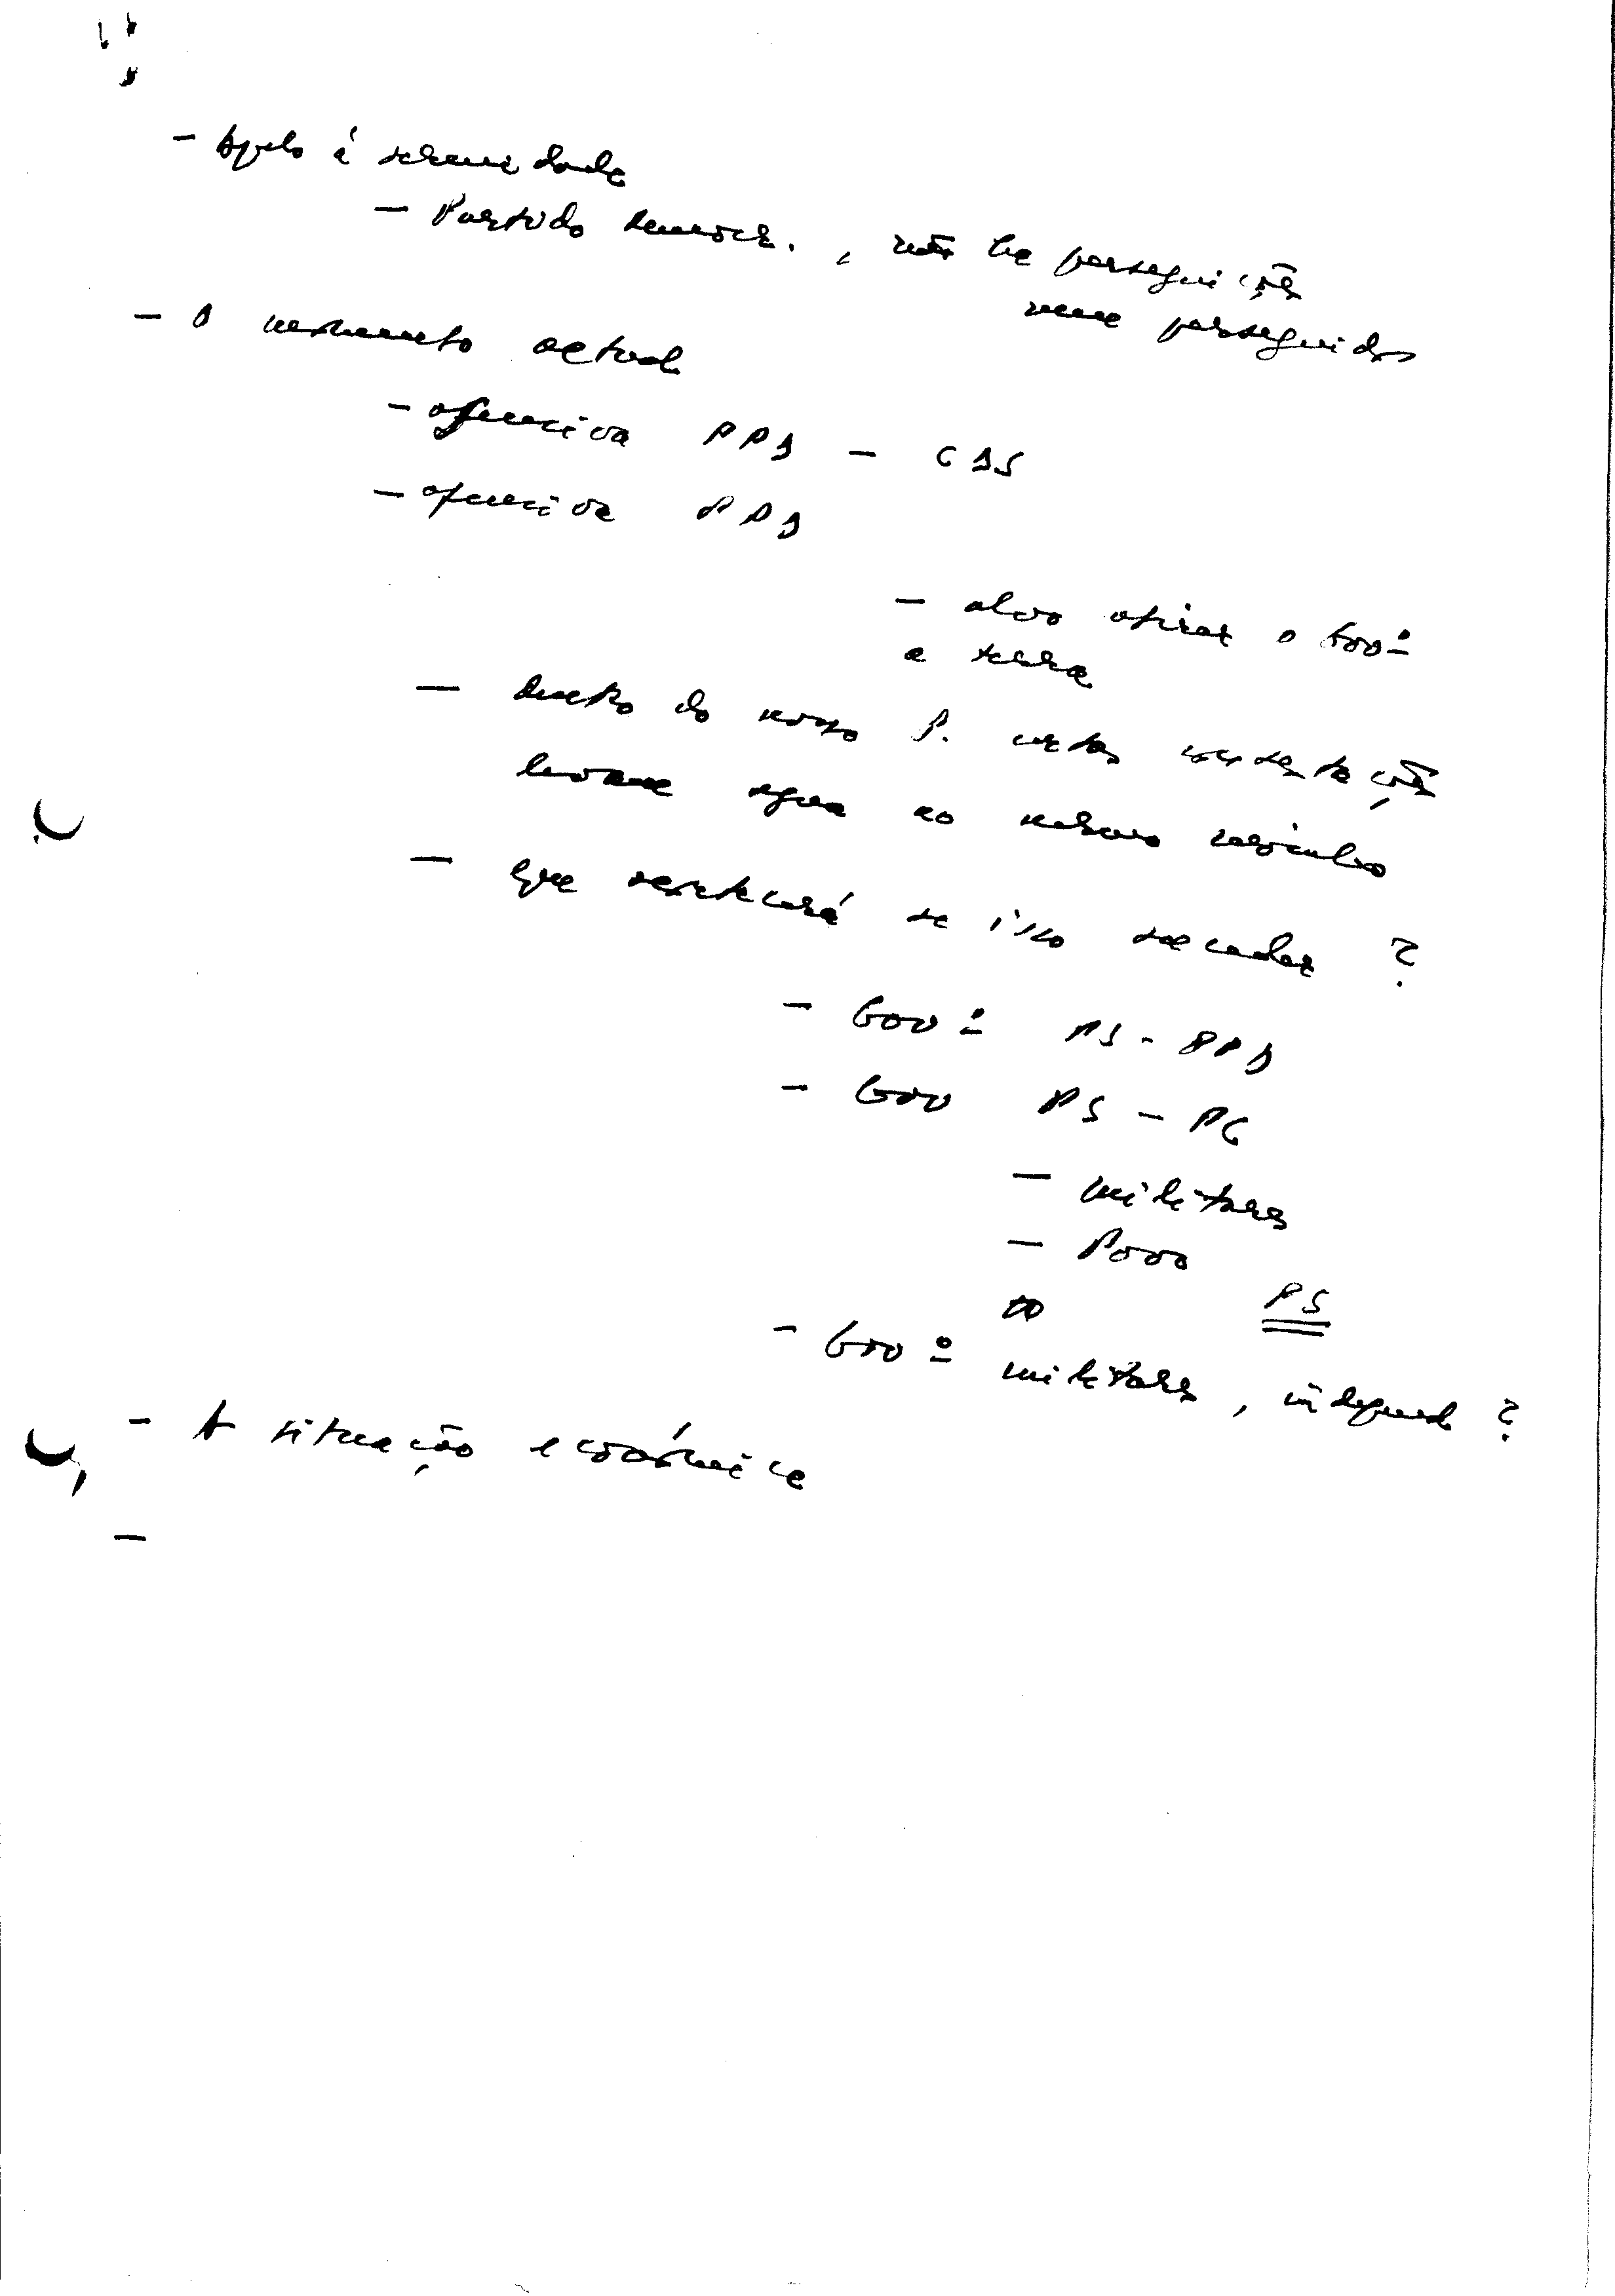 - Apelo á serenidade
- Partido democr., não há perseguições
nem perseguidos
- O momento actual
- ofensiva PPD - CDS
- ofensiva PPD
- alvo atirar o Govº
a terra
- dentro do nosso P. certas contestações
levam agua ao mesmo moinho
- que acontecerá se isso suceder ?
- Govº PS - PPD
- Gov PS - PC
- militares
- Povo
PS
- Govº militares, independ ?
- A situação económica
-